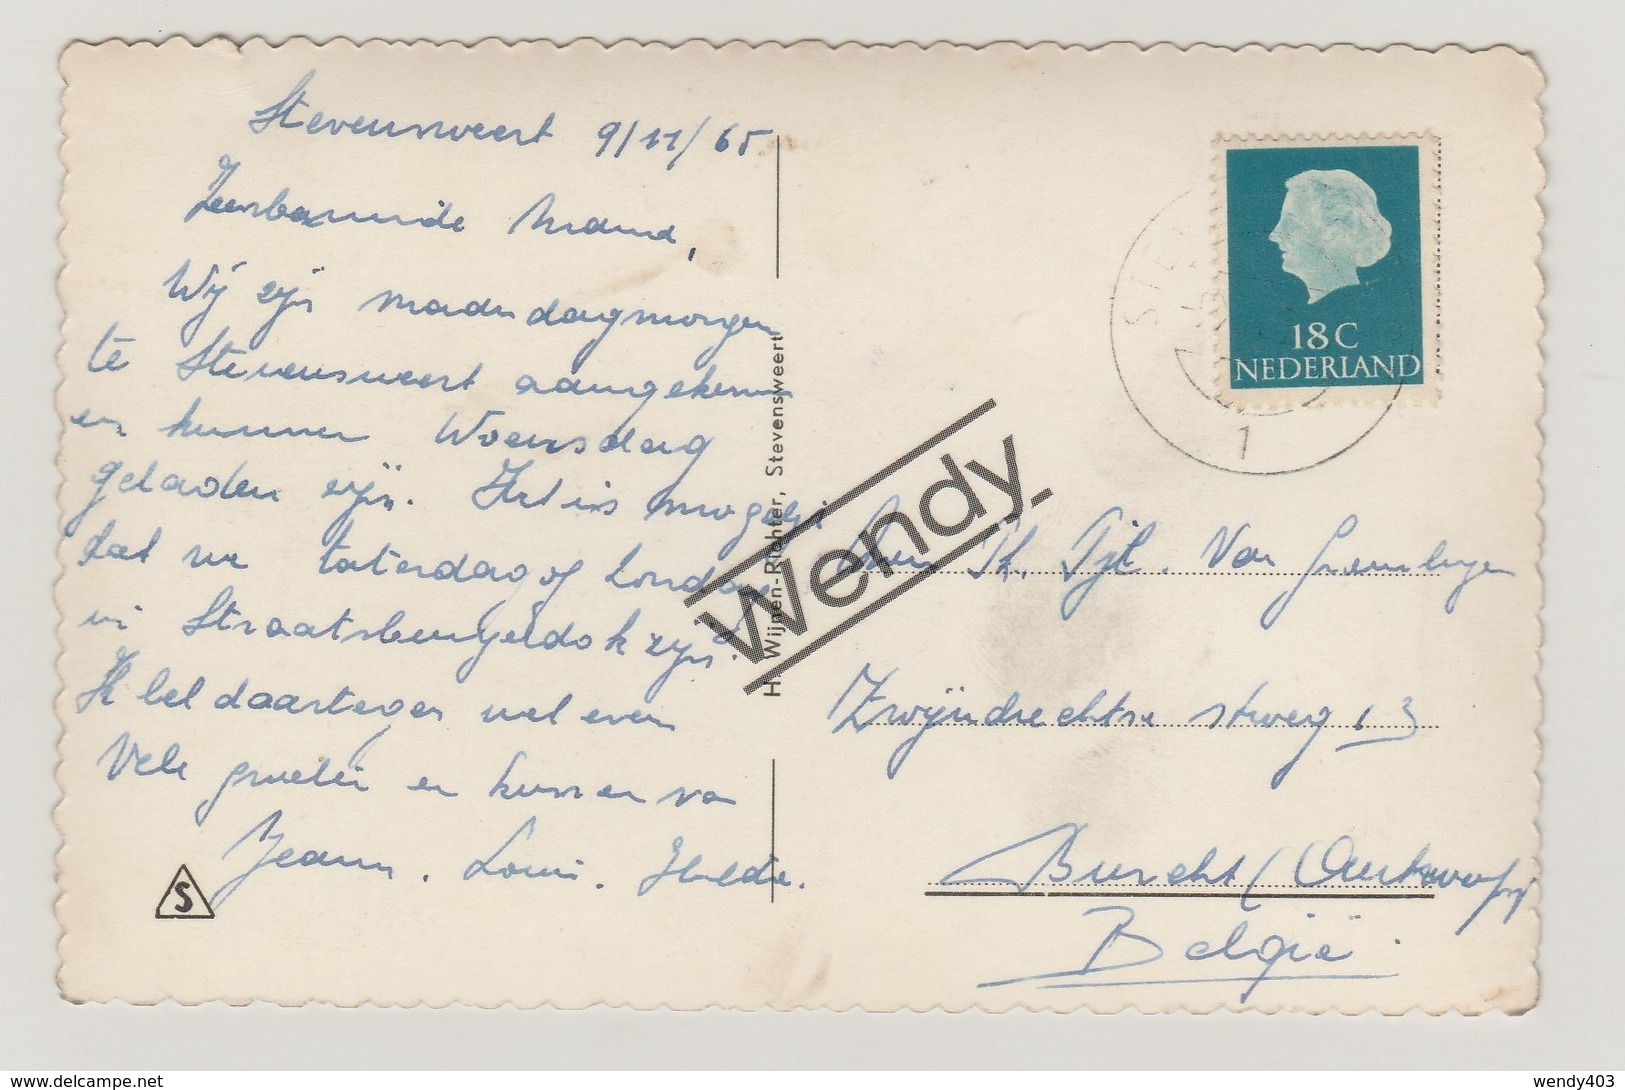 Stevensweert 9/11/65
Zeerbeminde Mama,
Wij zijn maandagmorgen
te Stevensweert aangekomen
en kunnen Woensdag
geladen zijn. Het is mogelijk
dat we zaterdag of zondag
in Straatsburgdok zijn.
Ik bel daartegen wel even
Vele groeten en kussen van
Jeann. Loui. Hilda.
S
H. Wijnen-Richter, Stevensweert
Wendy
STEV
1
18 C
NEDERLAND
Van
Zwijndrechtse stweg 13
Burcht (Antwerpen)
België
delcampe.net
wendy403